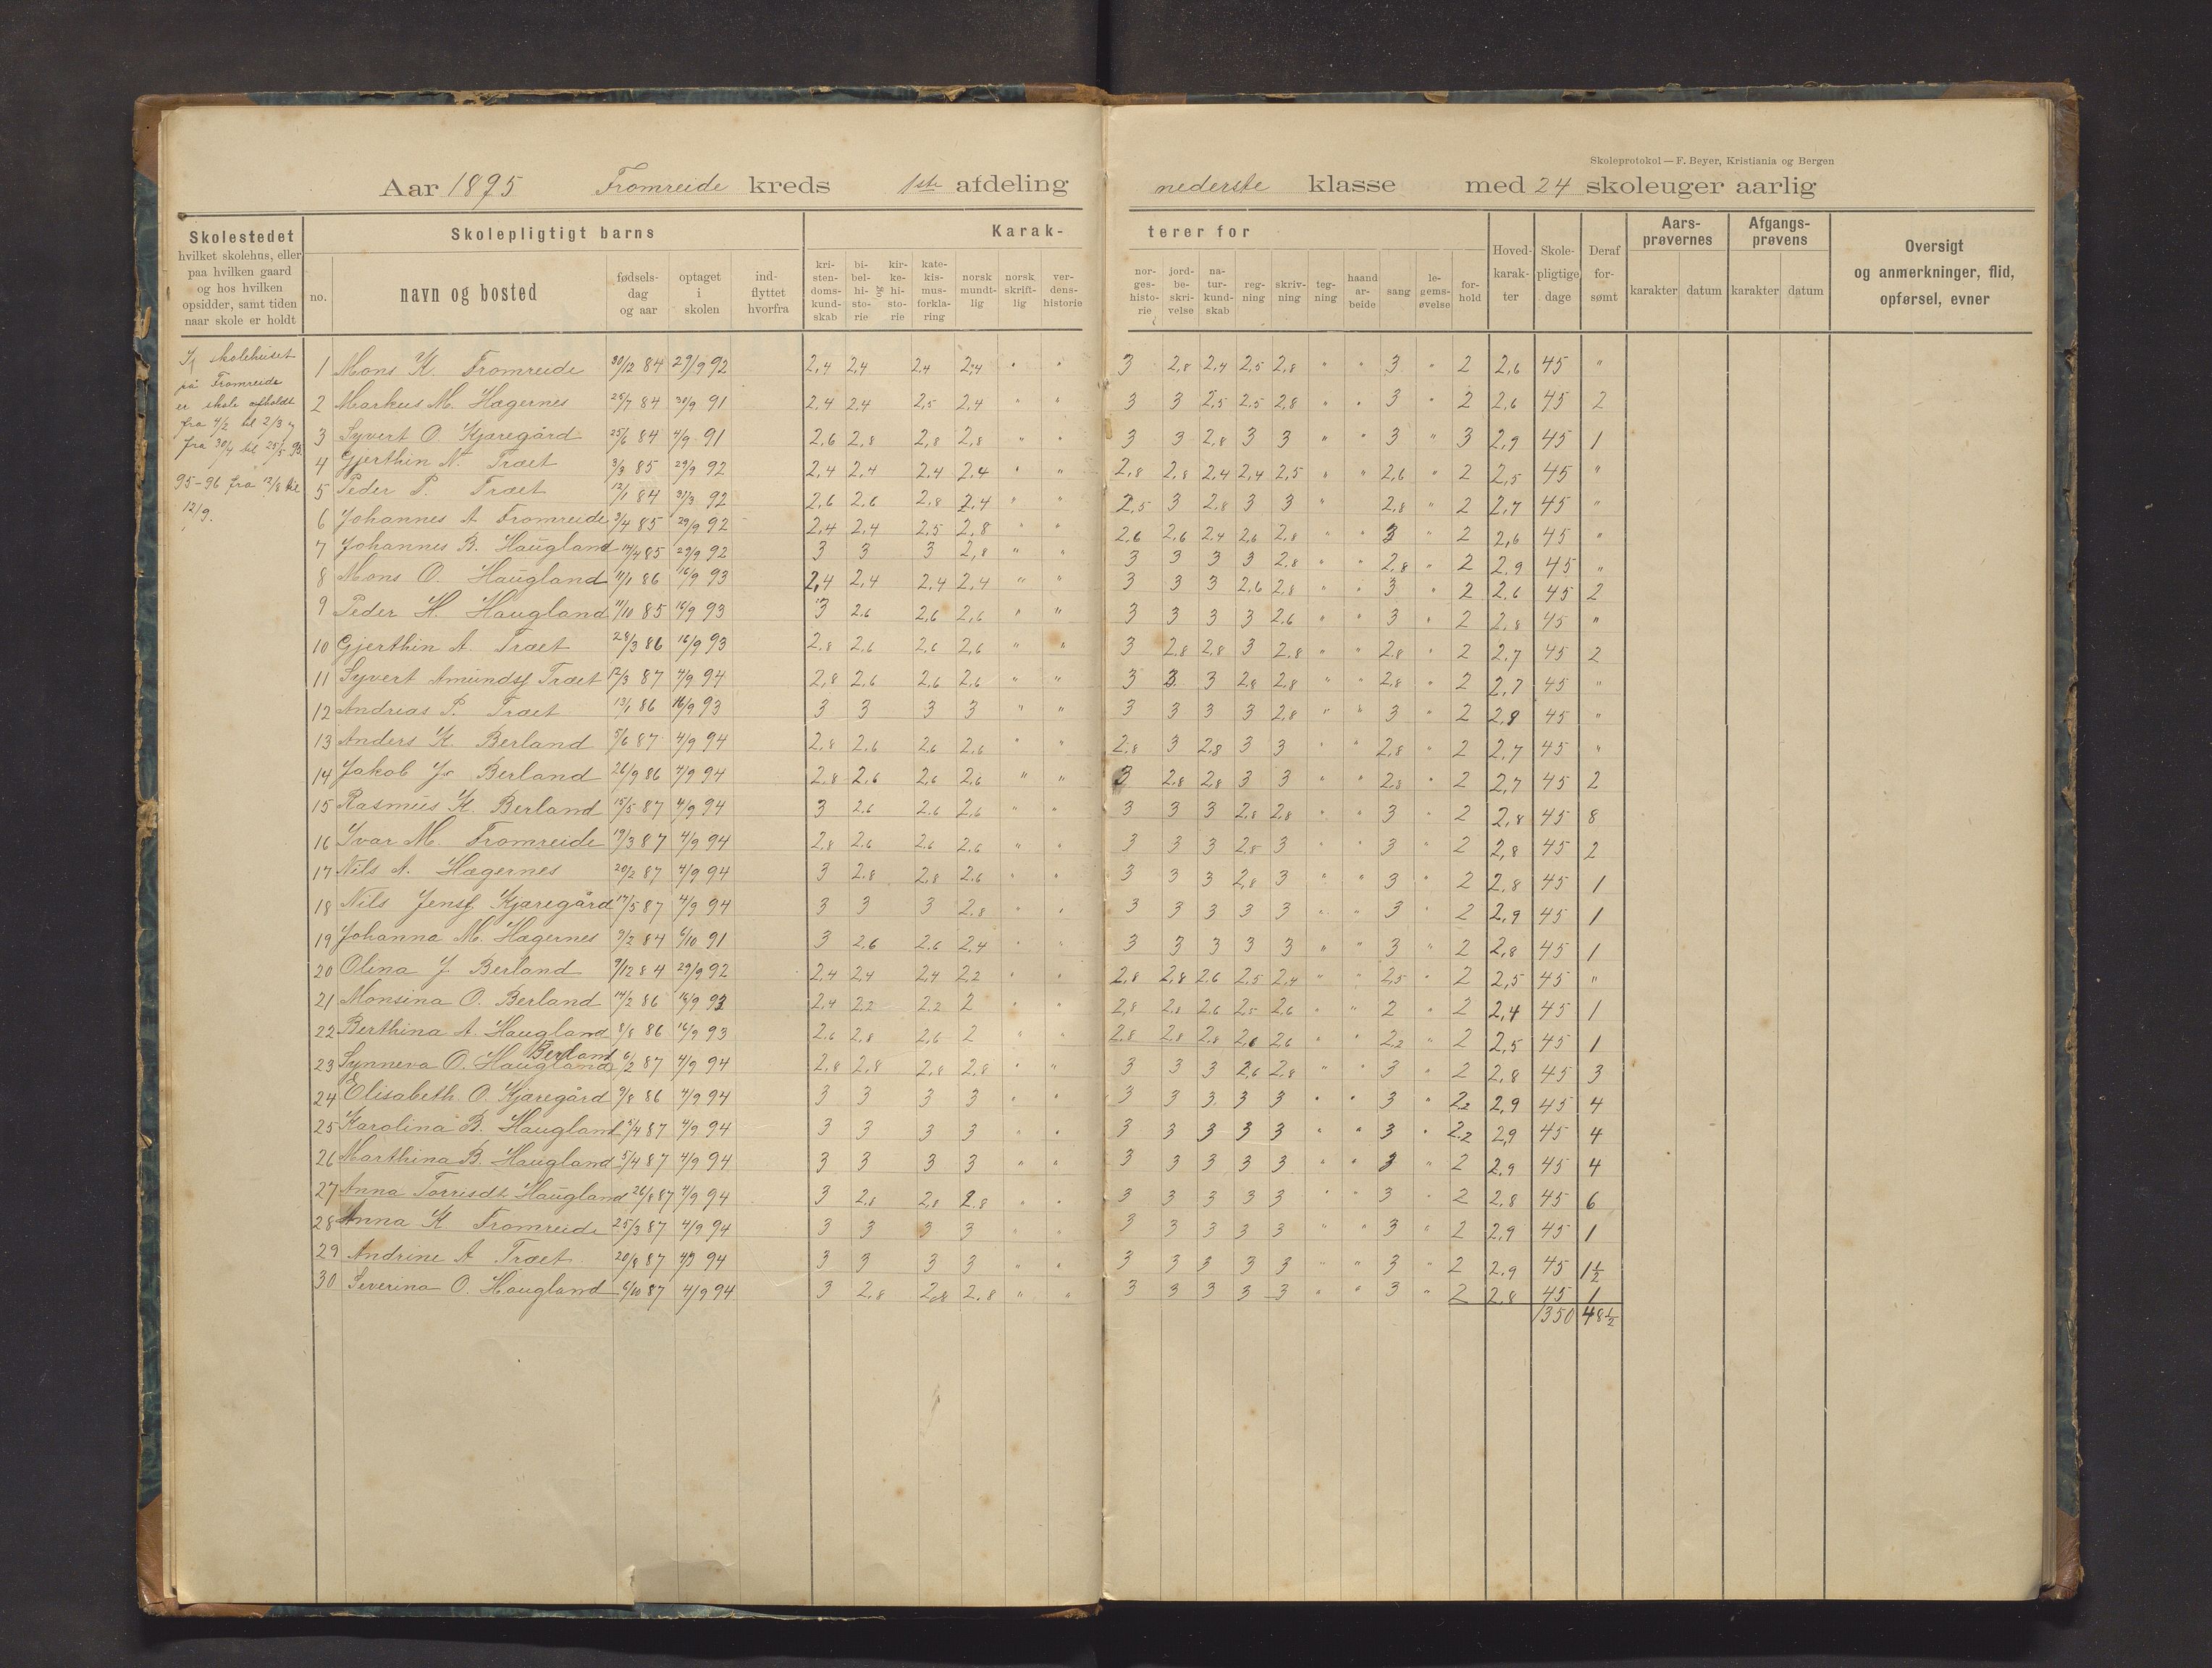 Skoleprotokol — F. Beyer, Kristiania og Bergen
Aar 1895 Fromreide kreds 1ste afdeling nederste klasse med 24 skoleuger aarlig
Skolestedet
hvilket skolehus, eller
paa hvilken gaard
og hos hvilken
opsidder, samt tiden
naar skole er holdt
Skolepligtigt barns
no. navn og bosted fødsels-dag og aar optaget i skolen ind-flyttet hvorfra
Karak-terer for
kri-sten-doms-kund-skab bi-bel-hi-sto-rie og kir-ke-hi-sto-rie kate-kis-mus-forkla-ring norsk mundt-lig norsk skrift-lig ver-dens-historie
nor-ges-histo-rie jord-be-skri-velse na-tur-kund-skab reg-ning skriv-ning teg-ning haand ar-beide sang le-gems-øvelse for-hold
Hoved-karak-ter Skole-pligtige dage Deraf for-sømt
Aars-prøvernes karakter datum
Afgangs-prøvens karakter datum
Oversigt
og anmerkninger, flid,
opførsel, evner
I skolehuset
på Fromreide
er skole afholdt
fra 4/2 til 2/3 og
fra 30/4 til 25/5 95.
95-96 fra 12/8 til
12/9.
1 Mons K. Fromreide 30/12 84 29/9 92 2,4 2,4 2,4 2,4 " " 3 2,8 2,4 2,5 2,8 " " 3 " 2 2,6 45 "
2 Markus M. Hægernes 25/7 84 30/9 91 2,4 2,4 2,5 2,4 " " 3 3 2,5 2,5 2,8 " " 3 " 2 2,6 45 2
3 Syvert O. Kjæregård 25/6 84 4/9 91 2,6 2,8 2,8 2,8 " " 3 3 2,8 3 3 " " 3 " 3 2,9 45 1
4 Gjerthin N. Træet 3/3 85 29/9 92 2,4 2,4 2,4 2,4 " " 2,8 2,8 2,4 2,4 2,5 " " 2,6 " 2 2,5 45 "
5 Peder P. Træet 12/1 84 31/3 92 2,6 2,6 2,8 2,4 " " 2,5 3 2,8 3 3 " 2,8 " 2 2,7 45 "
6 Johannes A. Fromreide 3/4 85 29/9 92 2,4 2,4 2,5 2,8 " " 2,6 2,6 2,4 2,6 2,8 " " 3 " 2 2,6 45 "
7 Johannes B. Haugland 14/4 85 29/9 92 3 3 3 2,8 " " 3 3 3 3 2,8 " " 2,8 " 2 2,9 45 "
8 Mons O. Haugland 11/1 86 16/9 93 2,4 2,4 2,4 2,4 " " 3 3 3 2,6 2,8 " " 3 " 2 2,6 45 2
9 Peder H. Haugland 11/10 85 16/9 93 3 2,6 2,6 2,6 " " 3 3 3 3 2,6 " " 3 " 2 2,8 45 "
10 Gjerthin A. Træet 28/3 86 16/9 93 2,8 2,6 2,6 2,6 " " 3 2,8 2,8 3 2,8 " " 2,8 " 2 2,7 45 2
11 Syvert Amundsf Træet 12/3 87 4/9 94 2,8 2,6 2,6 2,6 " " 3 3 3 2,8 2,8 " " 2,8 " 2 2,7 45 "
12 Andreas P. Træet 13/1 86 16/9 93 3 3 3 3 " " 3 3 3 3 2,8 " " 3 " 2 2,8 45 "
13 Anders K. Berland 5/6 87 4/9 94 2,8 2,6 2,6 2,6 " " 2,8 3 2,8 3 3 " " 2,8 " 2 2,7 45 "
14 Jakob Js. Berland 26/9 86 4/9 94 2,8 2,6 2,6 2,6 " " 3 2,8 2,8 3 3 " " 2,8 " 2 2,7 45 2
15 Rasmus K. Berland 15/5 87 4/9 94 3 2,6 2,6 2,6 " " 3 3 3 2,8 2,8 " " 3 " 2 2,8 45 8
16 Ivar M. Fromreide 19/3 87 4/9 94 2,8 2,6 2,6 2,6 " " 3 3 3 2,8 3 " " 3 " 2 2,8 45 2
17 Nils A. Hægernes 20/2 87 4/9 94 3 2,8 2,8 2,6 " " 3 3 3 2,8 3 " " 3 " 2 2,8 45 1
18 Nils Jensf. Kjæregård 17/5 87 4/9 94 3 3 3 2,8 " " 3 3 3 3 3 " " 3 " 2 2,9 45 1
19 Johanna M. Hægernes 9/2 84 6/10 91 3 2,6 2,6 2,4 " " 3 3 3 3 3 " " 3 " 2 2,8 45 1
20 Olina J. Berland 9/12 84 29/9 92 2,4 2,4 2,4 2,2 " " 2,8 2,8 2,6 2,5 2,4 " " 2,5 " 2 2,5 45 "
21 Monsina O. Berland 14/2 86 16/9 93 2,4 2,2 2,2 2 " " 2,8 2,8 2,6 2,5 2,6 " " 2 " 2 2,4 45 1
22 Berthina A. Haugland 8/8 86 16/9 93 2,6 2,8 2,6 2 " " 2,8 2,8 2,8 2,6 2,6 " " 2,2 " 2 2,5 45 1
Berland
23 Synneva O. Haugland 6/2 87 4/9 94 2,8 2,8 2,8 2,8 " " 3 3 3 2,6 2,8 " " 3 " 2 2,8 45 3
24 Elisabeth O. Kjæregård 9/8 86 4/9 94 3 3 3 3 " " 3 3 3 3 3 " " 3 " 2,2 2,9 45 4
25 Karolina B. Haugland 5/4 87 4/9 94 3 3 3 3 " " 3 3 3 3 3 " " 3 " 2,2 2,9 45 4
26 Marthina B. Haugland 5/4 87 4/9 94 3 3 3 3 " " 3 3 3 3 3 " " 3 " 2 2,9 45 4
27 Anna Torrisdt. Haugland 26/8 87 4/9 94 3 2,8 2,8 2,8 " " 3 3 3 3 3 " " 3 " 2 2,8 45 6
28 Anna K. Fromreide 25/3 87 4/9 94 3 3 3 3 " " 3 3 3 3 3 " " 3 " 2 2,9 45 1
29 Andrine A. Træet 20/8 87 4/9 94 3 3 3 3 " " 3 3 3 3 3 " " 3 " 2 2,9 45 1½
30 Severina O. Haugland 6/10 87 4/9 94 3 2,8 2,8 2,8 " " 3 3 3 3 3 " " 3 " 2 2,8 45 1
1350 48½